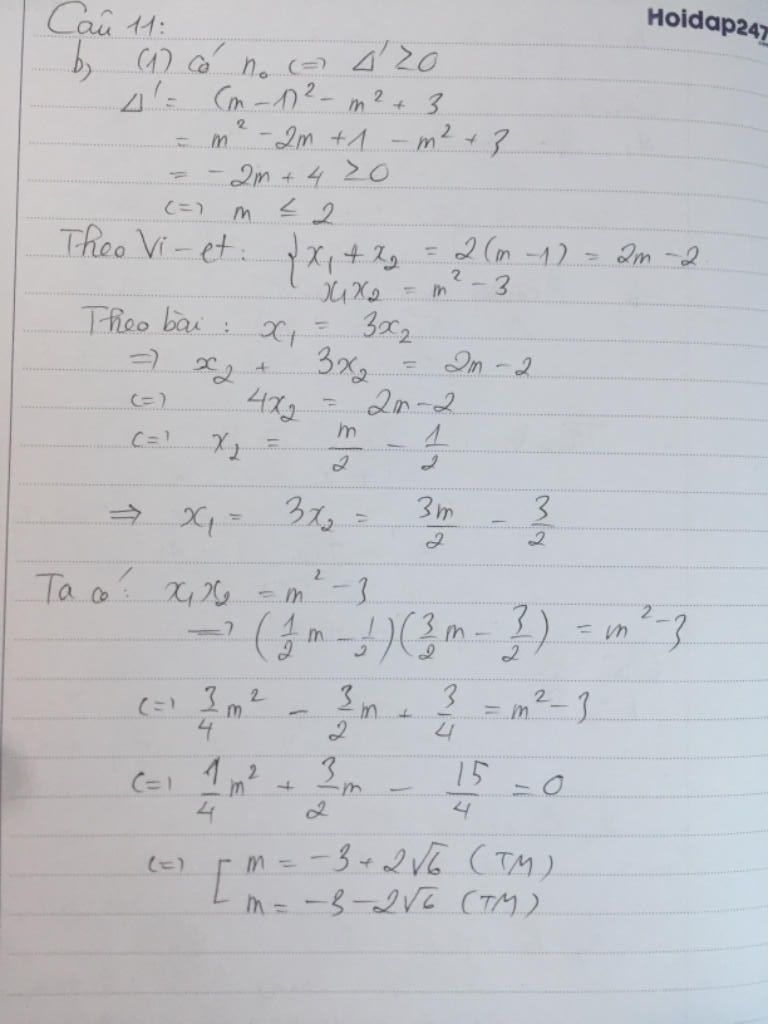 Câu 11:
Hoidap247
b, (1) có n₀ (=) Δ' ≥ 0
Δ' = (m - 1)² - m² + 3
= m² - 2m + 1 - m² + 3
= - 2m + 4 ≥ 0
(=) m ≤ 2
Theo Vi-et: { x₁ + x₂ = 2(m - 1) = 2m - 2
x₁x₂ = m² - 3
Theo bài: x₁ = 3x₂
=) x₂ + 3x₂ = 2m - 2
(=) 4x₂ = 2m - 2
(=) x₂ = m/2 - 1/2
⇒ x₁ = 3x₂ = 3m/2 - 3/2
Ta có: x₁x₂ = m² - 3
=) (1/2 m - 1/2)(3/2 m - 3/2) = m² - 3
(=) 3/4 m² - 3/2 m + 3/4 = m² - 3
(=) 1/4 m² + 3/2 m - 15/4 = 0
(=) [ m = -3 + 2√6 (TM)
m = -3 - 2√6 (TM)